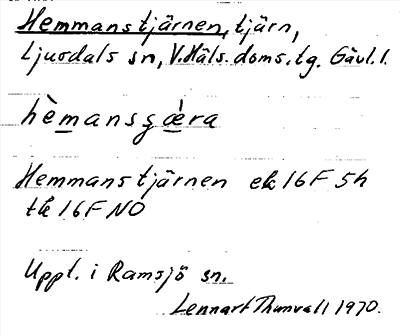 Hemmanstjärnen, tjärn,
Ljusdals sn, V. Häls. doms. tg. Gävl. l.
hèmansʒæ̀ra
Hemmanstjärnen ek 16F 5h
tk 16F NO
Uppt. i Ramsjö sn.
Lennart Thunvall 1970.